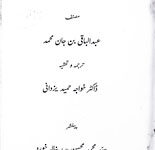 مصنف
عبدالباقی بن جان محمد
ترجمہ و تحشیہ
ڈاکٹر خواجہ حمید یزدانی
پبلشر